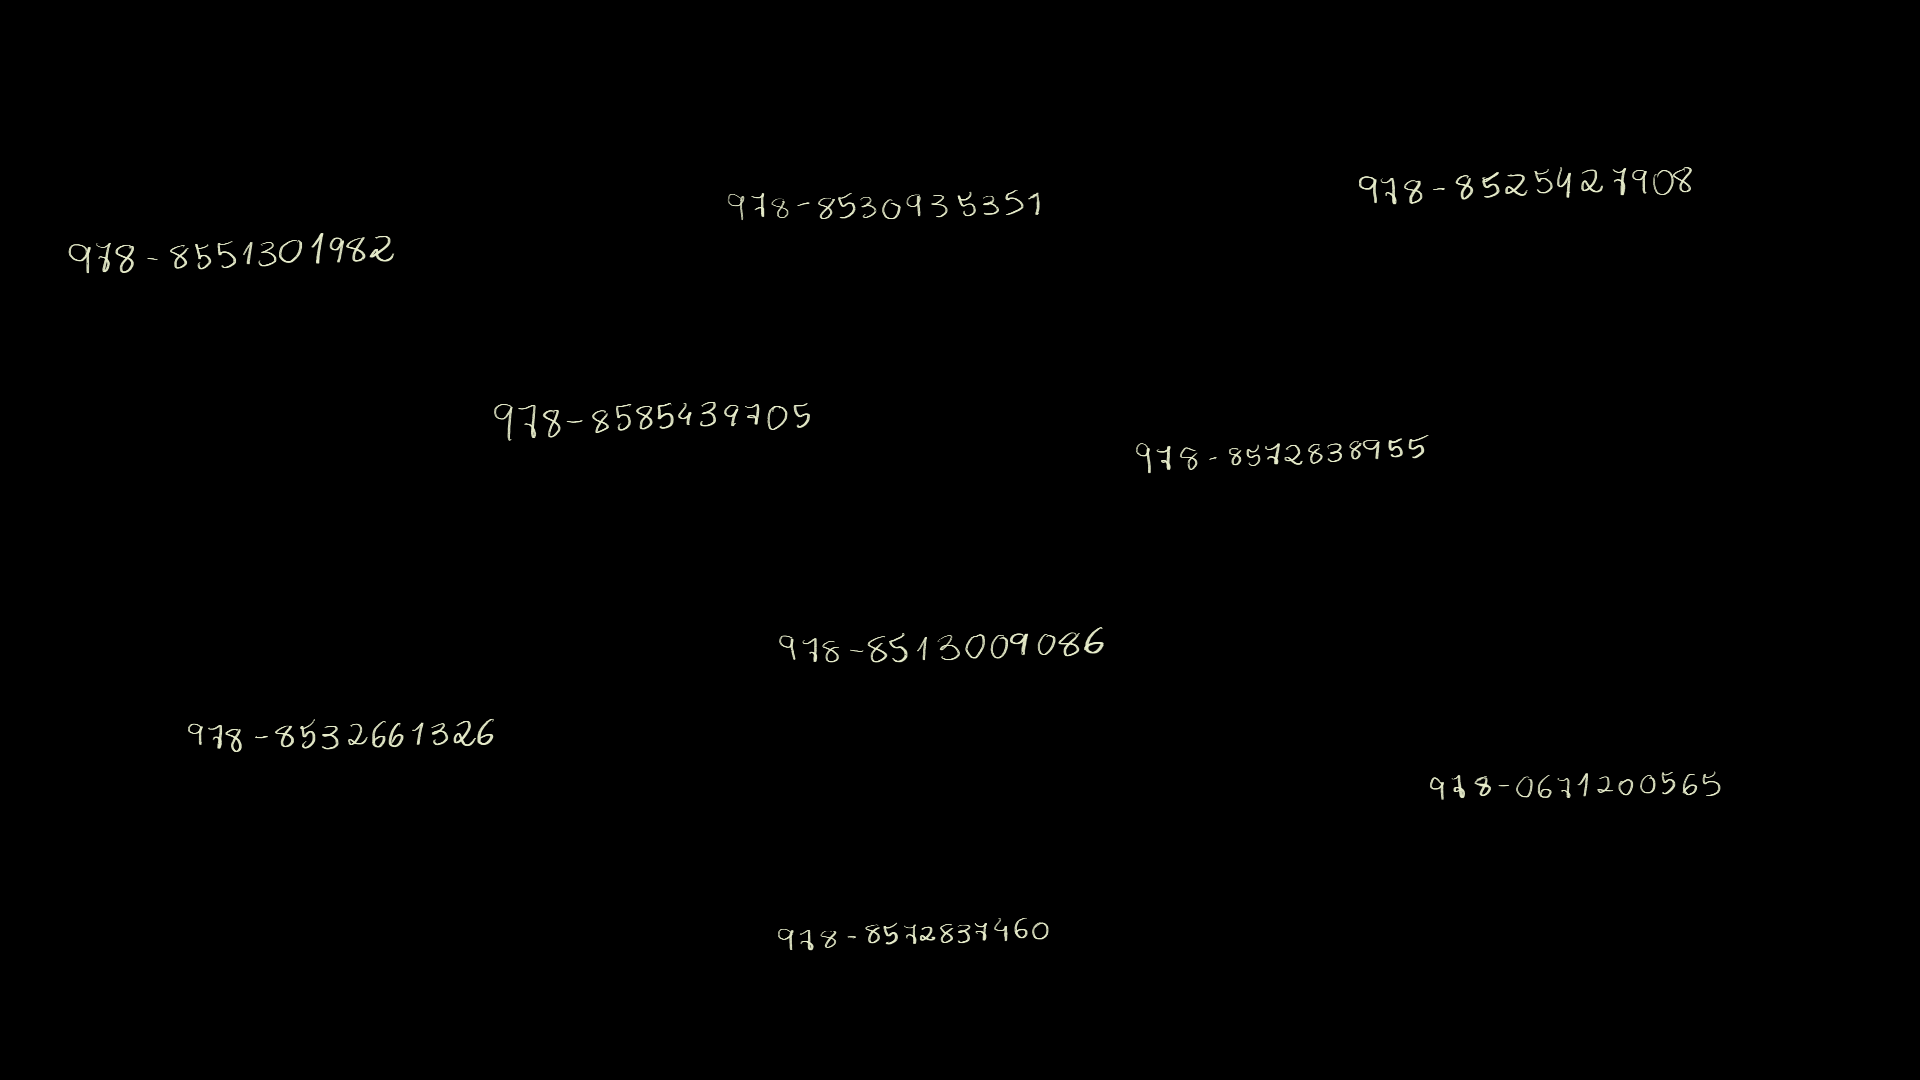 978-8530935351
978-8525427908
978-8551301982
978-8585439705
978-8572838955
978-8513009086
978-8532661326
978-0671200565
978-8572837460